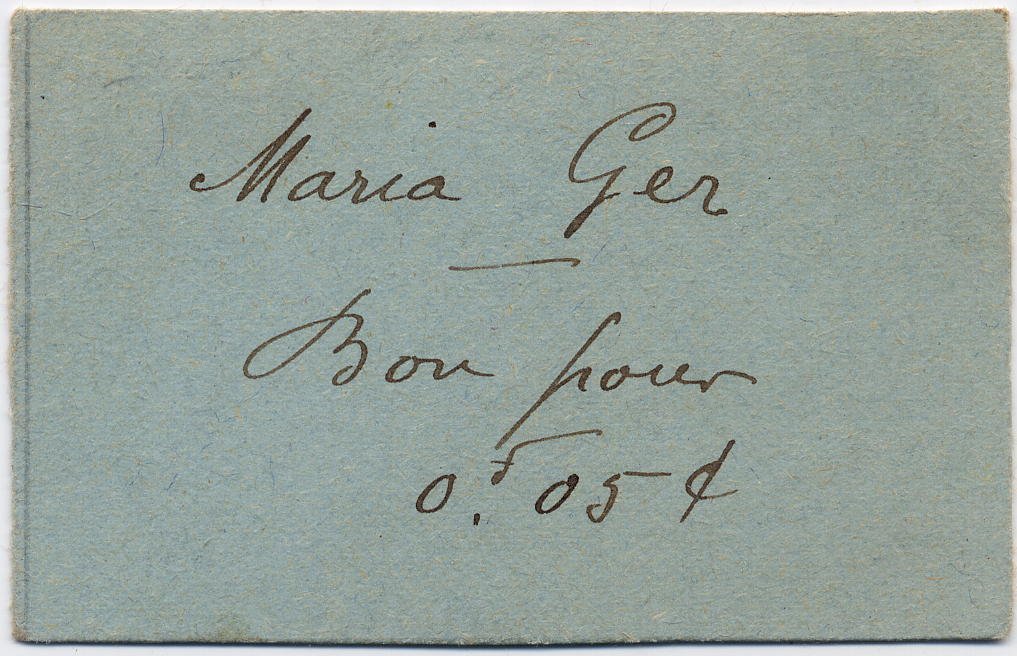 Maria Ger
Bon pour
0,f 05 ¢